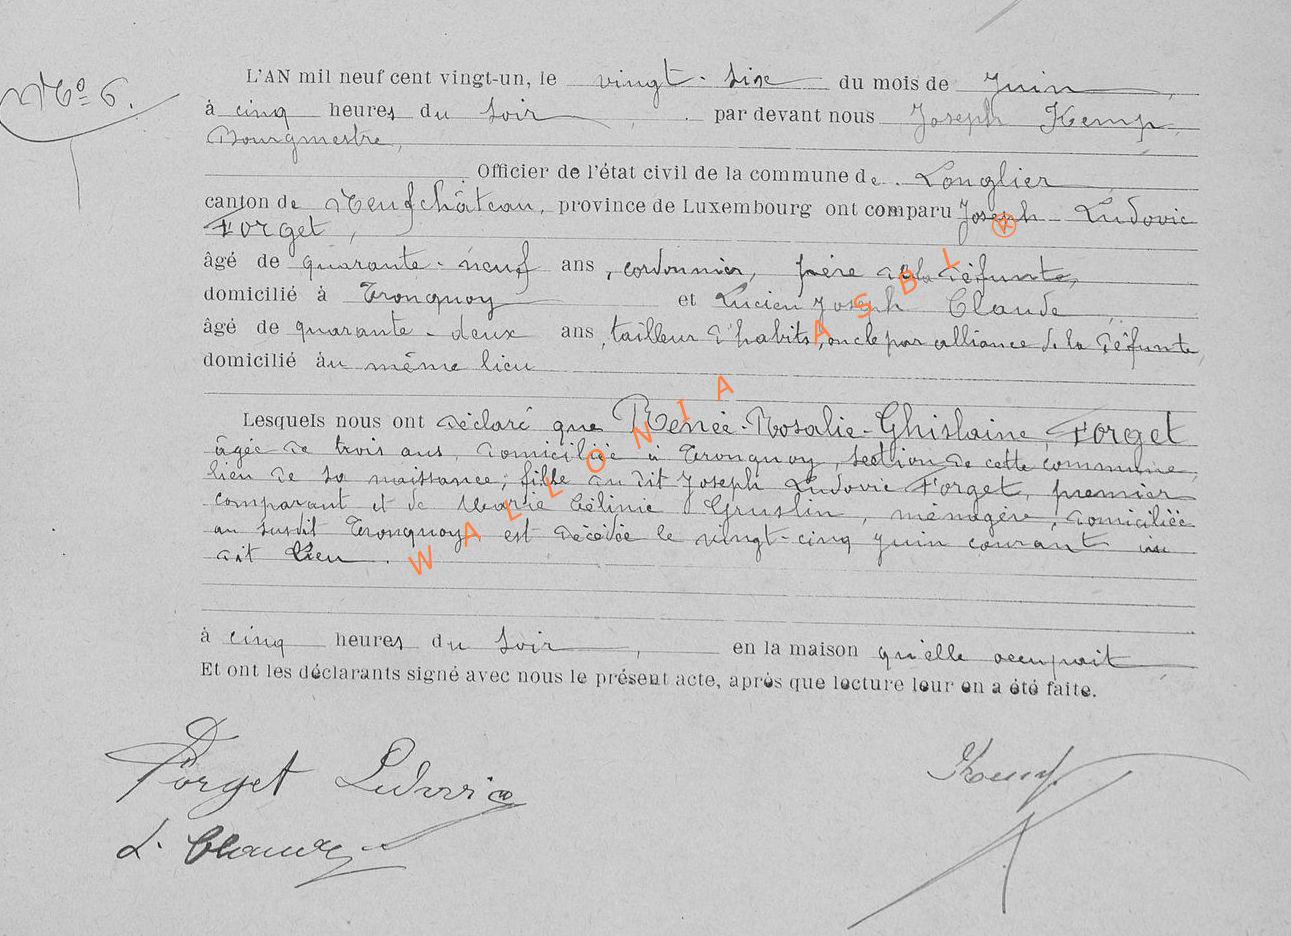 No 6.
L'AN mil neuf cent vingt-un, le vingt-six du mois de Juin,
à cinq heures du soir, par devant nous Joseph Kemp,
Bourgmestre,
Officier de l'état civil de la commune de Longlier
canton de Neufchâteau, province de Luxembourg ont comparu Joseph Ludovic
Forget,
âgé de quarante-neuf ans, cordonnier, père de la défunte,
domicilié à Tronquoy et Lucien Joseph Claude,
âgé de quarante-deux ans, tailleur d'habits, oncle par alliance de la défunte
domicilié au même lieu
Lesquels nous ont déclaré que Renée-Rosalie-Ghislaine Forget
âgée de trois ans, domiciliée à Tronquoy, section de cette commune,
lieu de sa naissance; fille du dit Joseph Ludovic Forget, premier
comparant et de Marie Céline Gruslin, ménagère, domiciliée
au susdit Tronquoy est décédée le vingt-cinq juin courant au
dit lieu.
à cinq heures du soir, en la maison qu'elle occupait
Et ont les déclarants signé avec nous le présent acte, après que lecture leur en a été faite.
Forget Ludovic
Kemp
L. Claude
WALLONIA ASBL